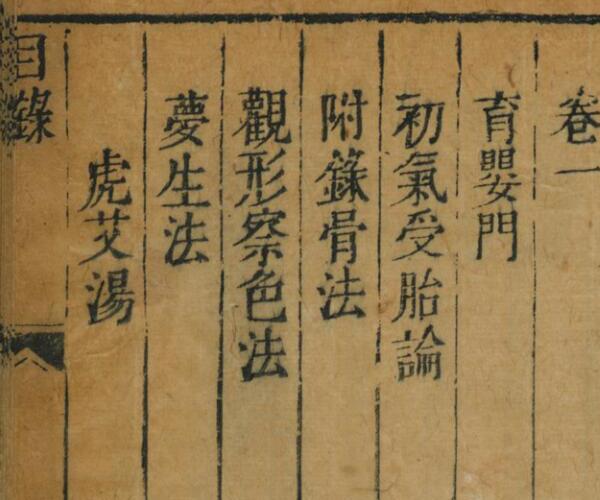 卷一
育嬰門
初氣受胎論
附錄骨法
觀形察色法
夢生法
虎艾湯
目錄